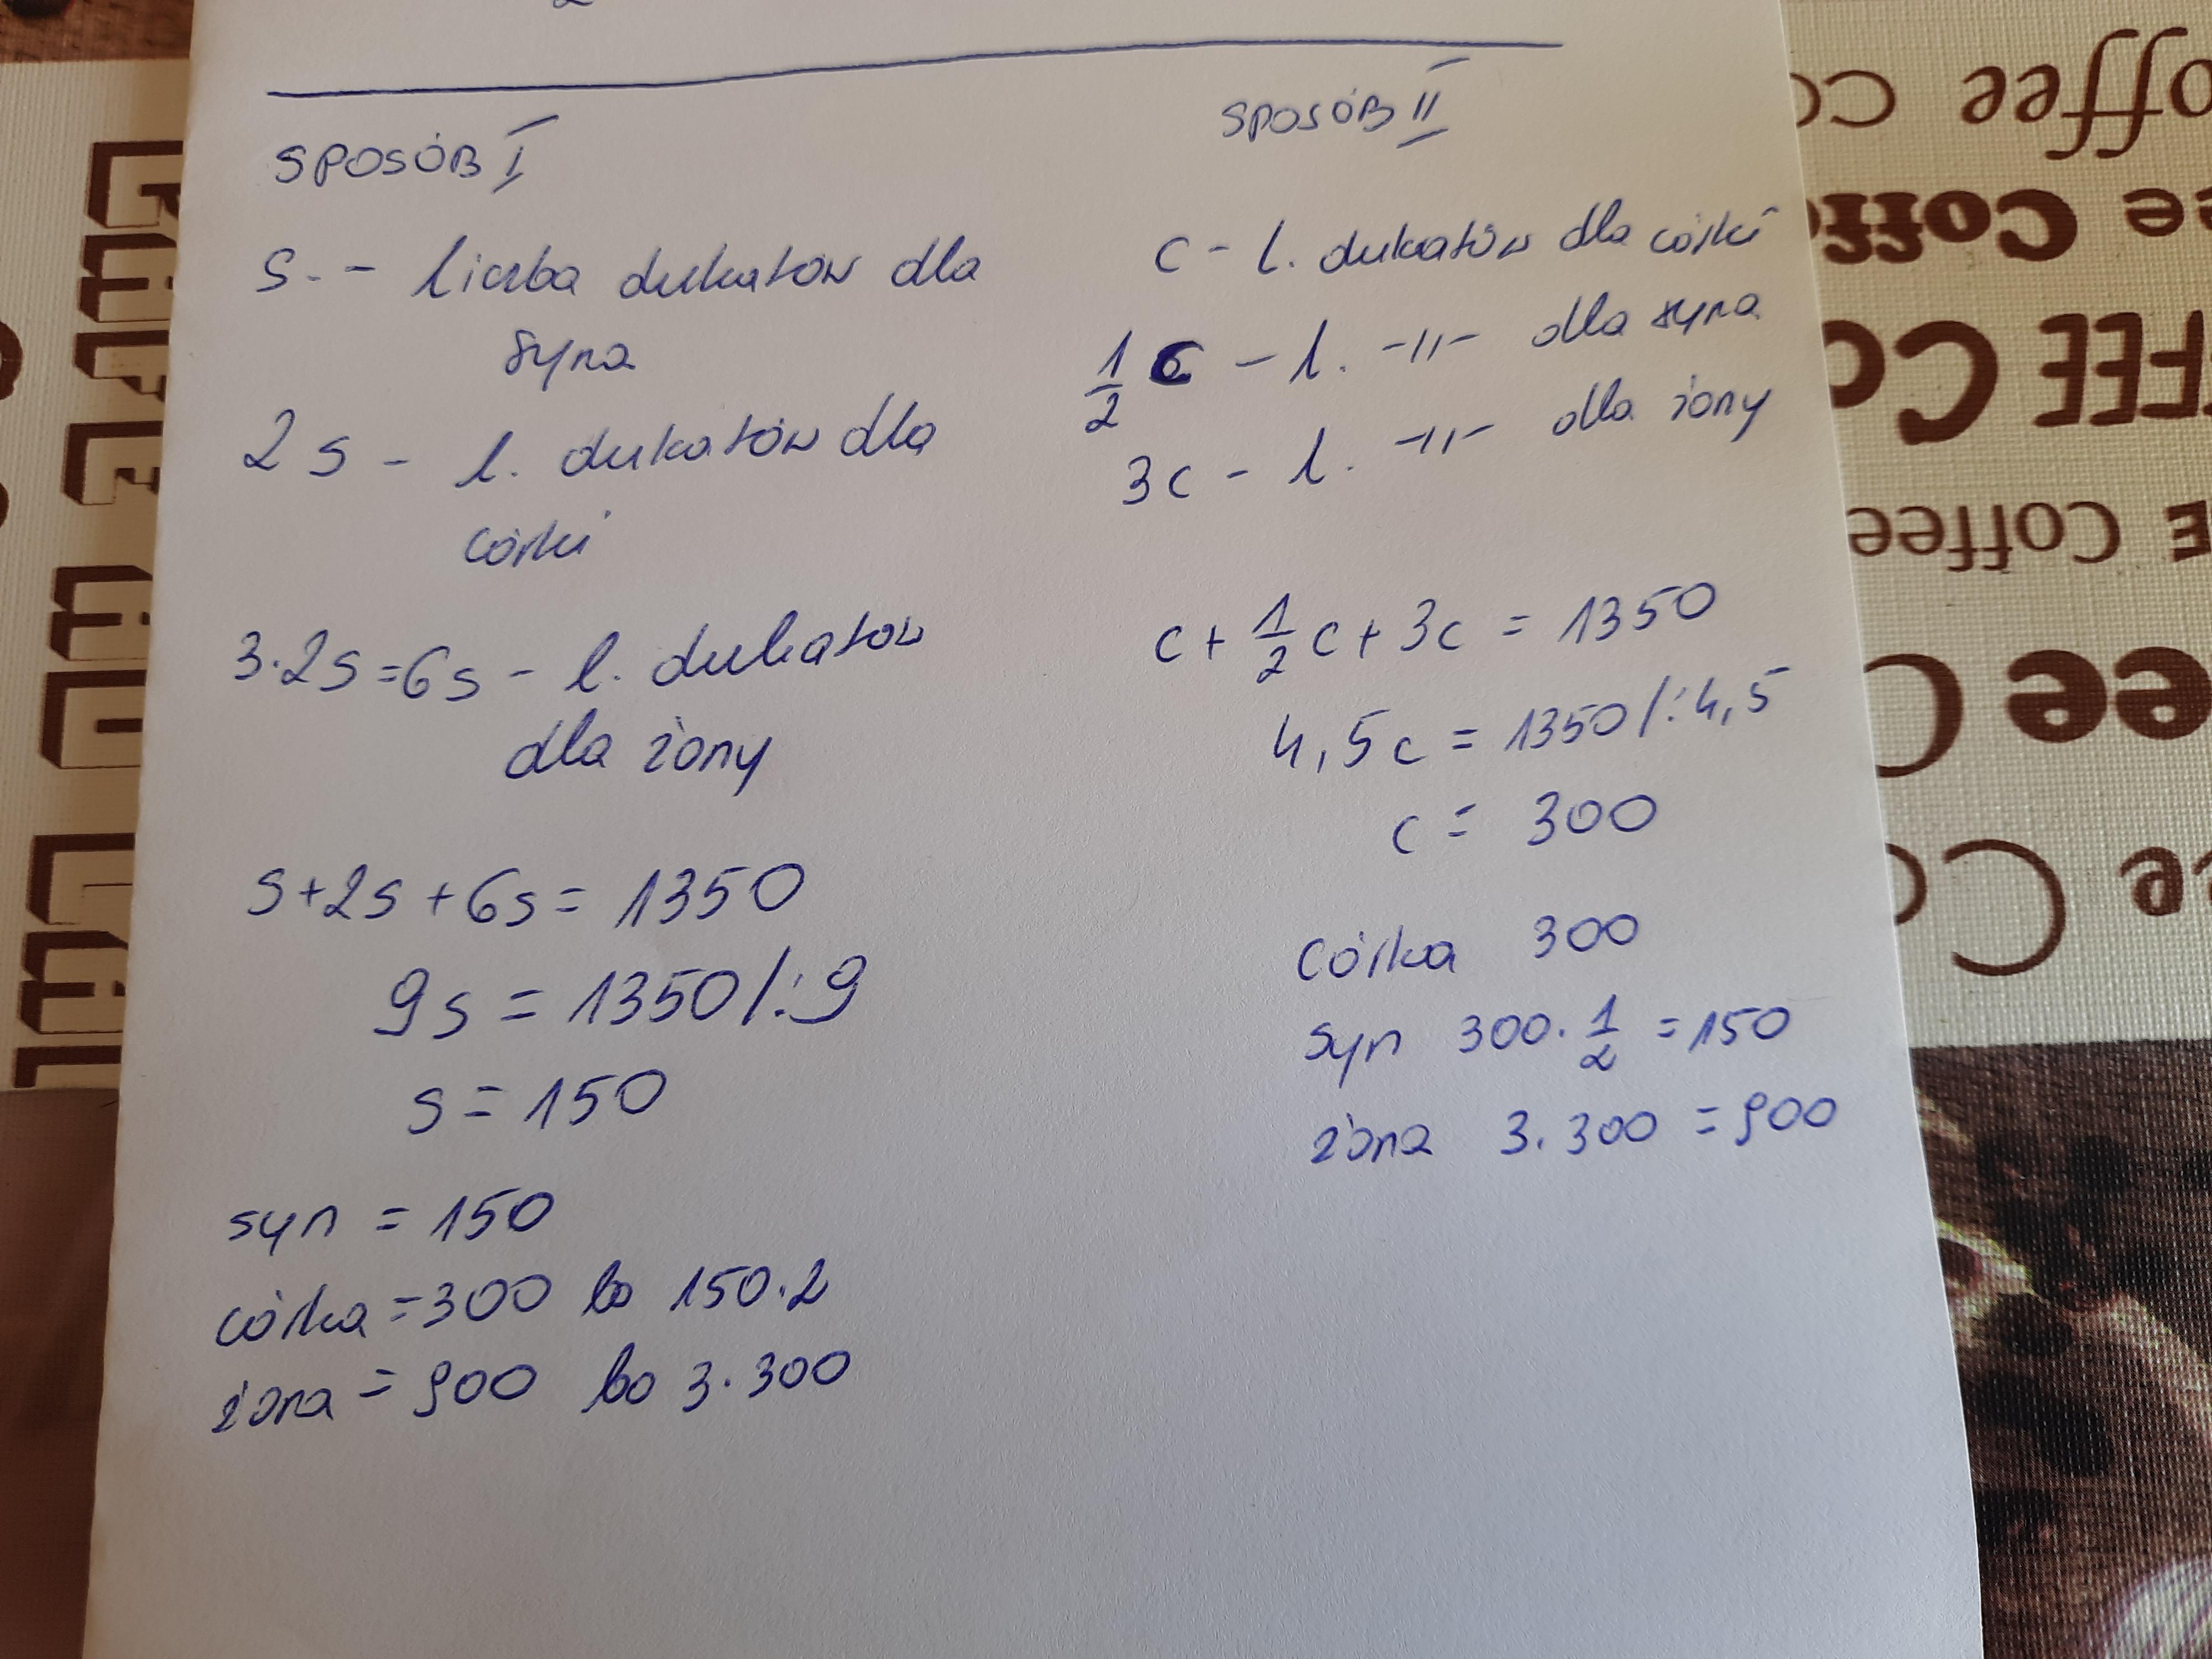 SPOSÓB I
s - liczba dukatów dla
syna
2s - l. dukatów dla
córki
3·2s=6s - l. dukatów
dla żony
s+2s+6s= 1350
9s = 1350/:9
s = 150
syn = 150
córka =300 bo 150·2
żona = 900 bo 3·300
SPOSÓB II
c - l. dukatów dla córki
1/2 c - l. -11- dla syna
3c - l. -11- dla żony
c+ 1/2 c+ 3c = 1350
4,5c = 1350/:4,5
c = 300
córka 300
syn 300· 1/2 = 150
żona 3·300 = 900
offee CO
ee Coffe
FEE CO
E Coffee
ee C
e Co